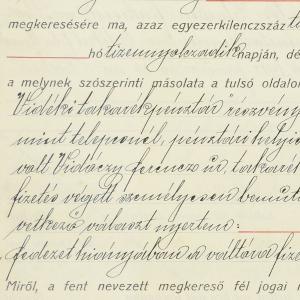 megkeresésére ma, azaz egyezerkilenczszáz
hó tizennyolczadik napján, dé
a melynek szószerinti másolata a tulsó oldalon
Vidéki takarékpénztár részvény
mint telepenél, pénztári helyi
valt Vidóczy ferencz úr, takaré
fizetés végett személyesen bemut
vetkező választ nyertem:
fedezet hiányában a váltóra fize
Miről, a fent nevezett megkereső fél jogai